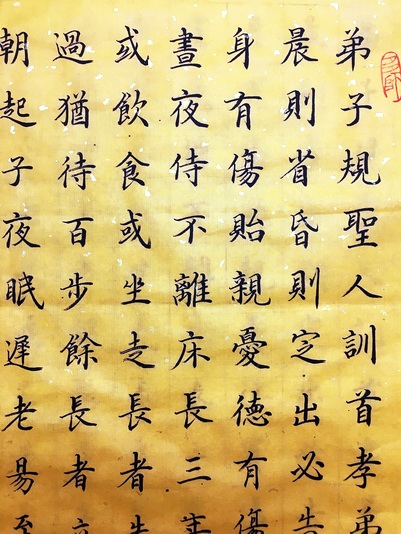 弟子規聖人訓首孝弟
晨則省昏則定出必告
身有傷貽親憂德有傷
晝夜侍不離床長三
或飲食或坐走長者先
過猶待百步餘長者立
朝起子夜眠遲老易至